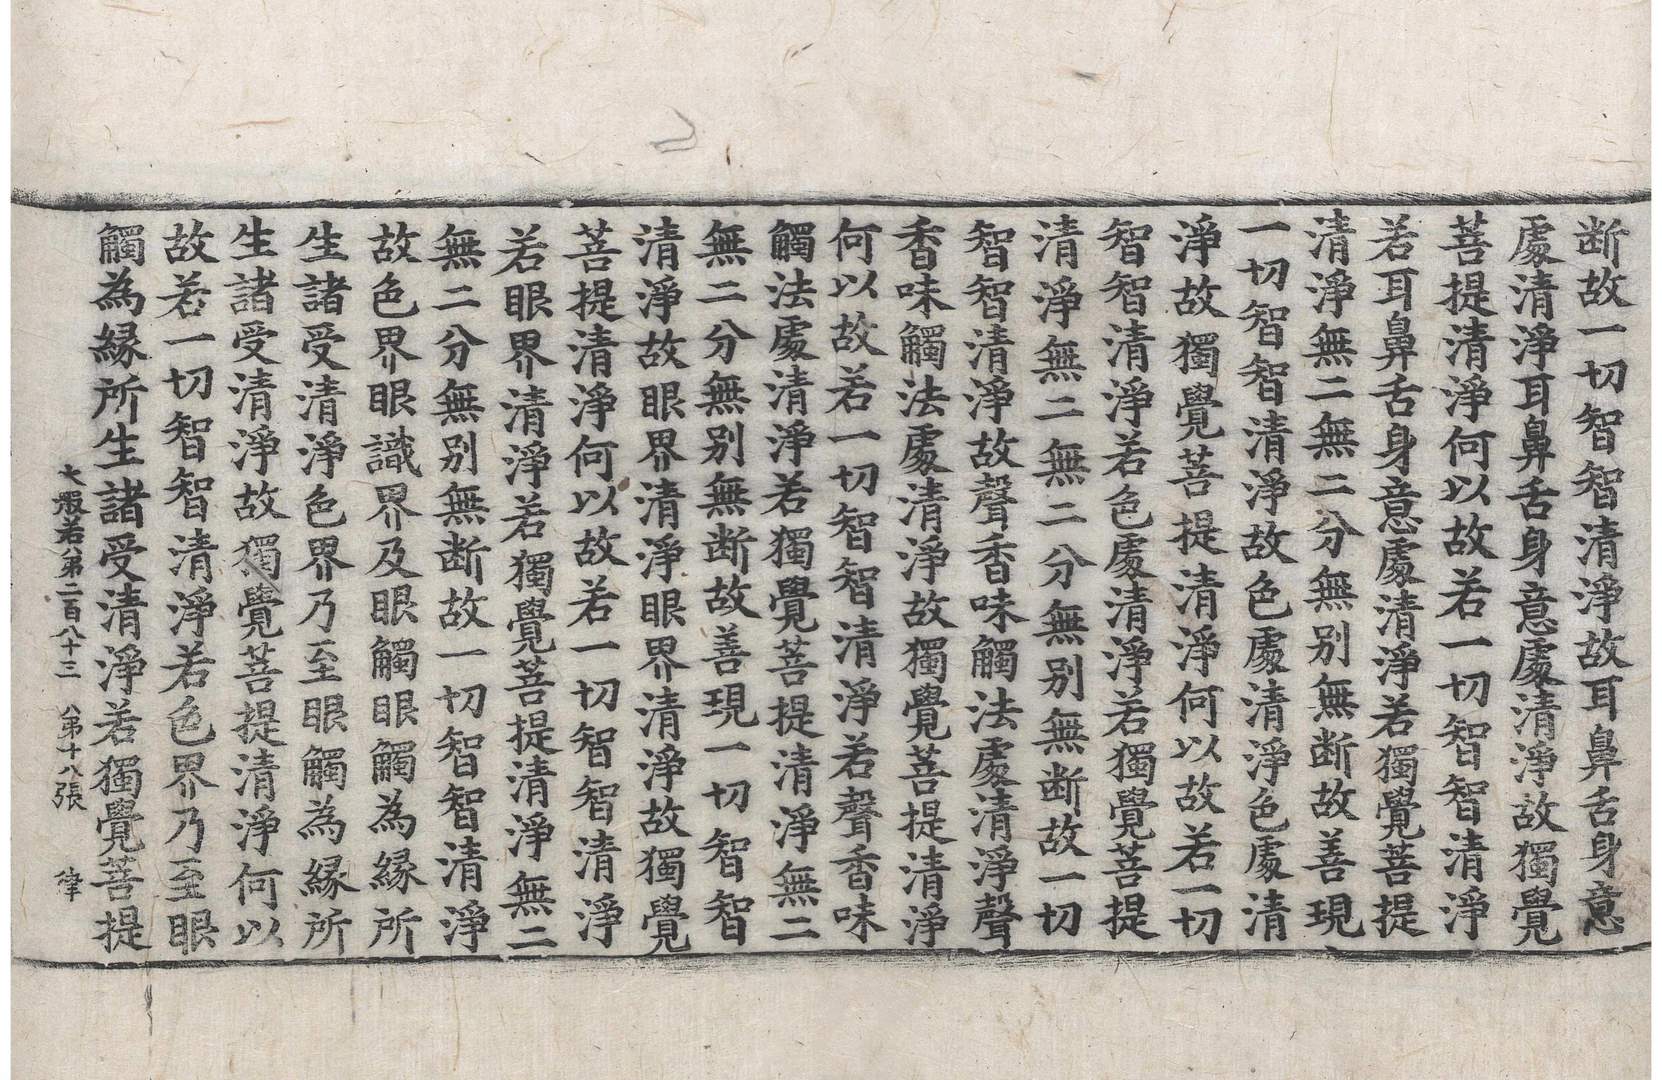 断故一切智智清淨故耳鼻舌身意
處清淨耳鼻舌身意處清淨故獨覺
菩提清淨何以故若一切智智清淨
若耳鼻舌身意處清淨若獨覺菩提
清淨無二無二分無別無断故善現
一切智智清淨故色處清淨色處清
淨故獨覺菩提清淨何以故若一切
智智清淨若色處清淨若獨覺菩提
清淨無二無二分無別無断故一切
智智清淨故聲香味觸法處清淨聲
香味觸法處清淨故獨覺菩提清淨
何以故若一切智智清淨若聲香味
觸法處清淨若獨覺菩提清淨無二
無二分無別無断故善現一切智智
清淨故眼界清淨眼界清淨故獨覺
菩提清淨何以故若一切智智清淨
若眼界清淨若獨覺菩提清淨無二
無二分無別無断故一切智智清淨
故色界眼識界及眼觸眼觸為緣所
生諸受清淨色界乃至眼觸為緣所
生諸受清淨故獨覺菩提清淨何以
故若一切智智清淨若色界乃至眼
觸為緣所生諸受清淨若獨覺菩提
大般若第二百八十三 第十八張 律